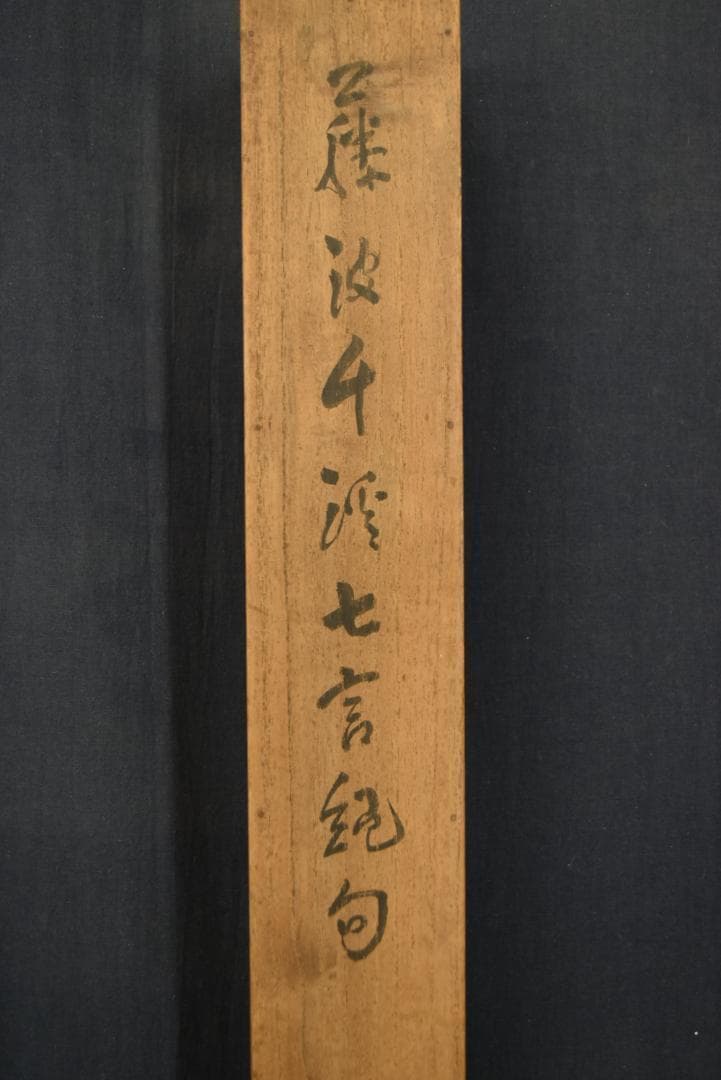 藤波千溪七言絶句